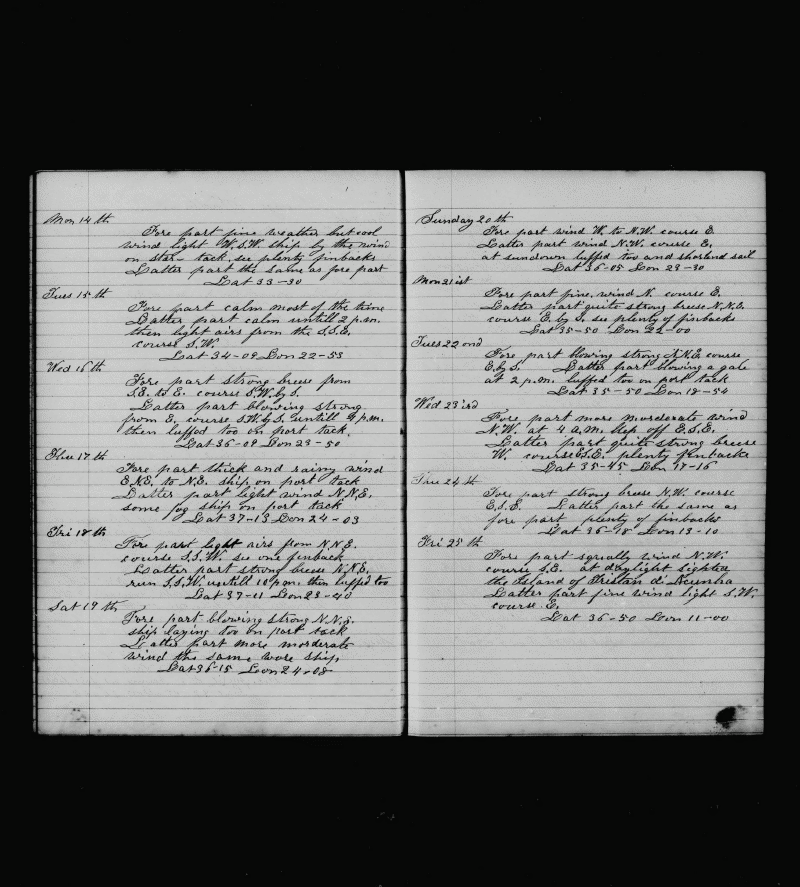 Mon 14 th
Fore part fine weather but cool
wind light W.S.W. ship by the wind
on star- tack, see plenty finbacks
Latter part the same as fore part
Lat 33-30
Tues 15 th
Fore part calm most of the time
Latter part calm untill 2 p.m.
then light airs from the S.S.E.
course S.W.
Lat 34-09 Lon 22-53
Wed 16 th
Fore part strong breese from
S.E. to E. course S.W. by S.
Latter part blowing strong
from E. course S.W. by S. untill 4 p.m.
then luffed too on port tack.
Lat 36-09 Lon 23-50
Thu 17 th
Fore part thick and rainy wind
E.N.E. to N.E. ship on port tack
Latter part light wind N.N.E.
some fog ship on port tack
Lat 37-13 Lon 24-03
Fri 18 th
Fore part light airs from N.N.E.
course S.S.W. see one finback
Latter part strong breese N.N.E.
run S.S.W. untill 10 p.m. then luffed too
Lat 37-11 Lon 23-40
Sat 19 th
Fore part blowing strong N.N.E.
ship laying too on port tack
Latter part more morderate
wind the same wore ship,
Lat 36-15 Lon 24-08
Sunday 20 th
Fore part wind W. to N.W. course E.
Latter part wind N.W. course E.
at sundown luffed too and shortend sail
Lat 36-05 Lon 23-30
Mon 21 ist
Fore part fine, wind N. course E.
Latter part quite strong breese N.N.E.
course E. by S. see plenty of finbacks
Lat 35-50 Lon 22-00
Tues 22 ond
Fore part blowing strong N.N.E. course
E. by S. Latter part blowing a gale
at 2 p.m. luffed too on port tack
Lat 35-50 Lon 18-54
Wed 23 ird
Fore part more morderate wind
N.W. at 4 a.m. kep off E.S.E.
Latter part quite strong breese
W. course E.S.E. plenty finbacks
Lat 35-45 Lon 17-16
Thu 24 th
Fore part strong breese N.W. course
E.S.E. Latter part the same as
fore part plenty of finbacks
Lat 36-18 Lon 13-10
Fri 25 th
Fore part squally wind N.W.
course S.E. at daylight sighted
the Island of Tristan d'Acunha
Latter part fine wind light S.W.
course E.
Lat 36-50 Lon 11-00